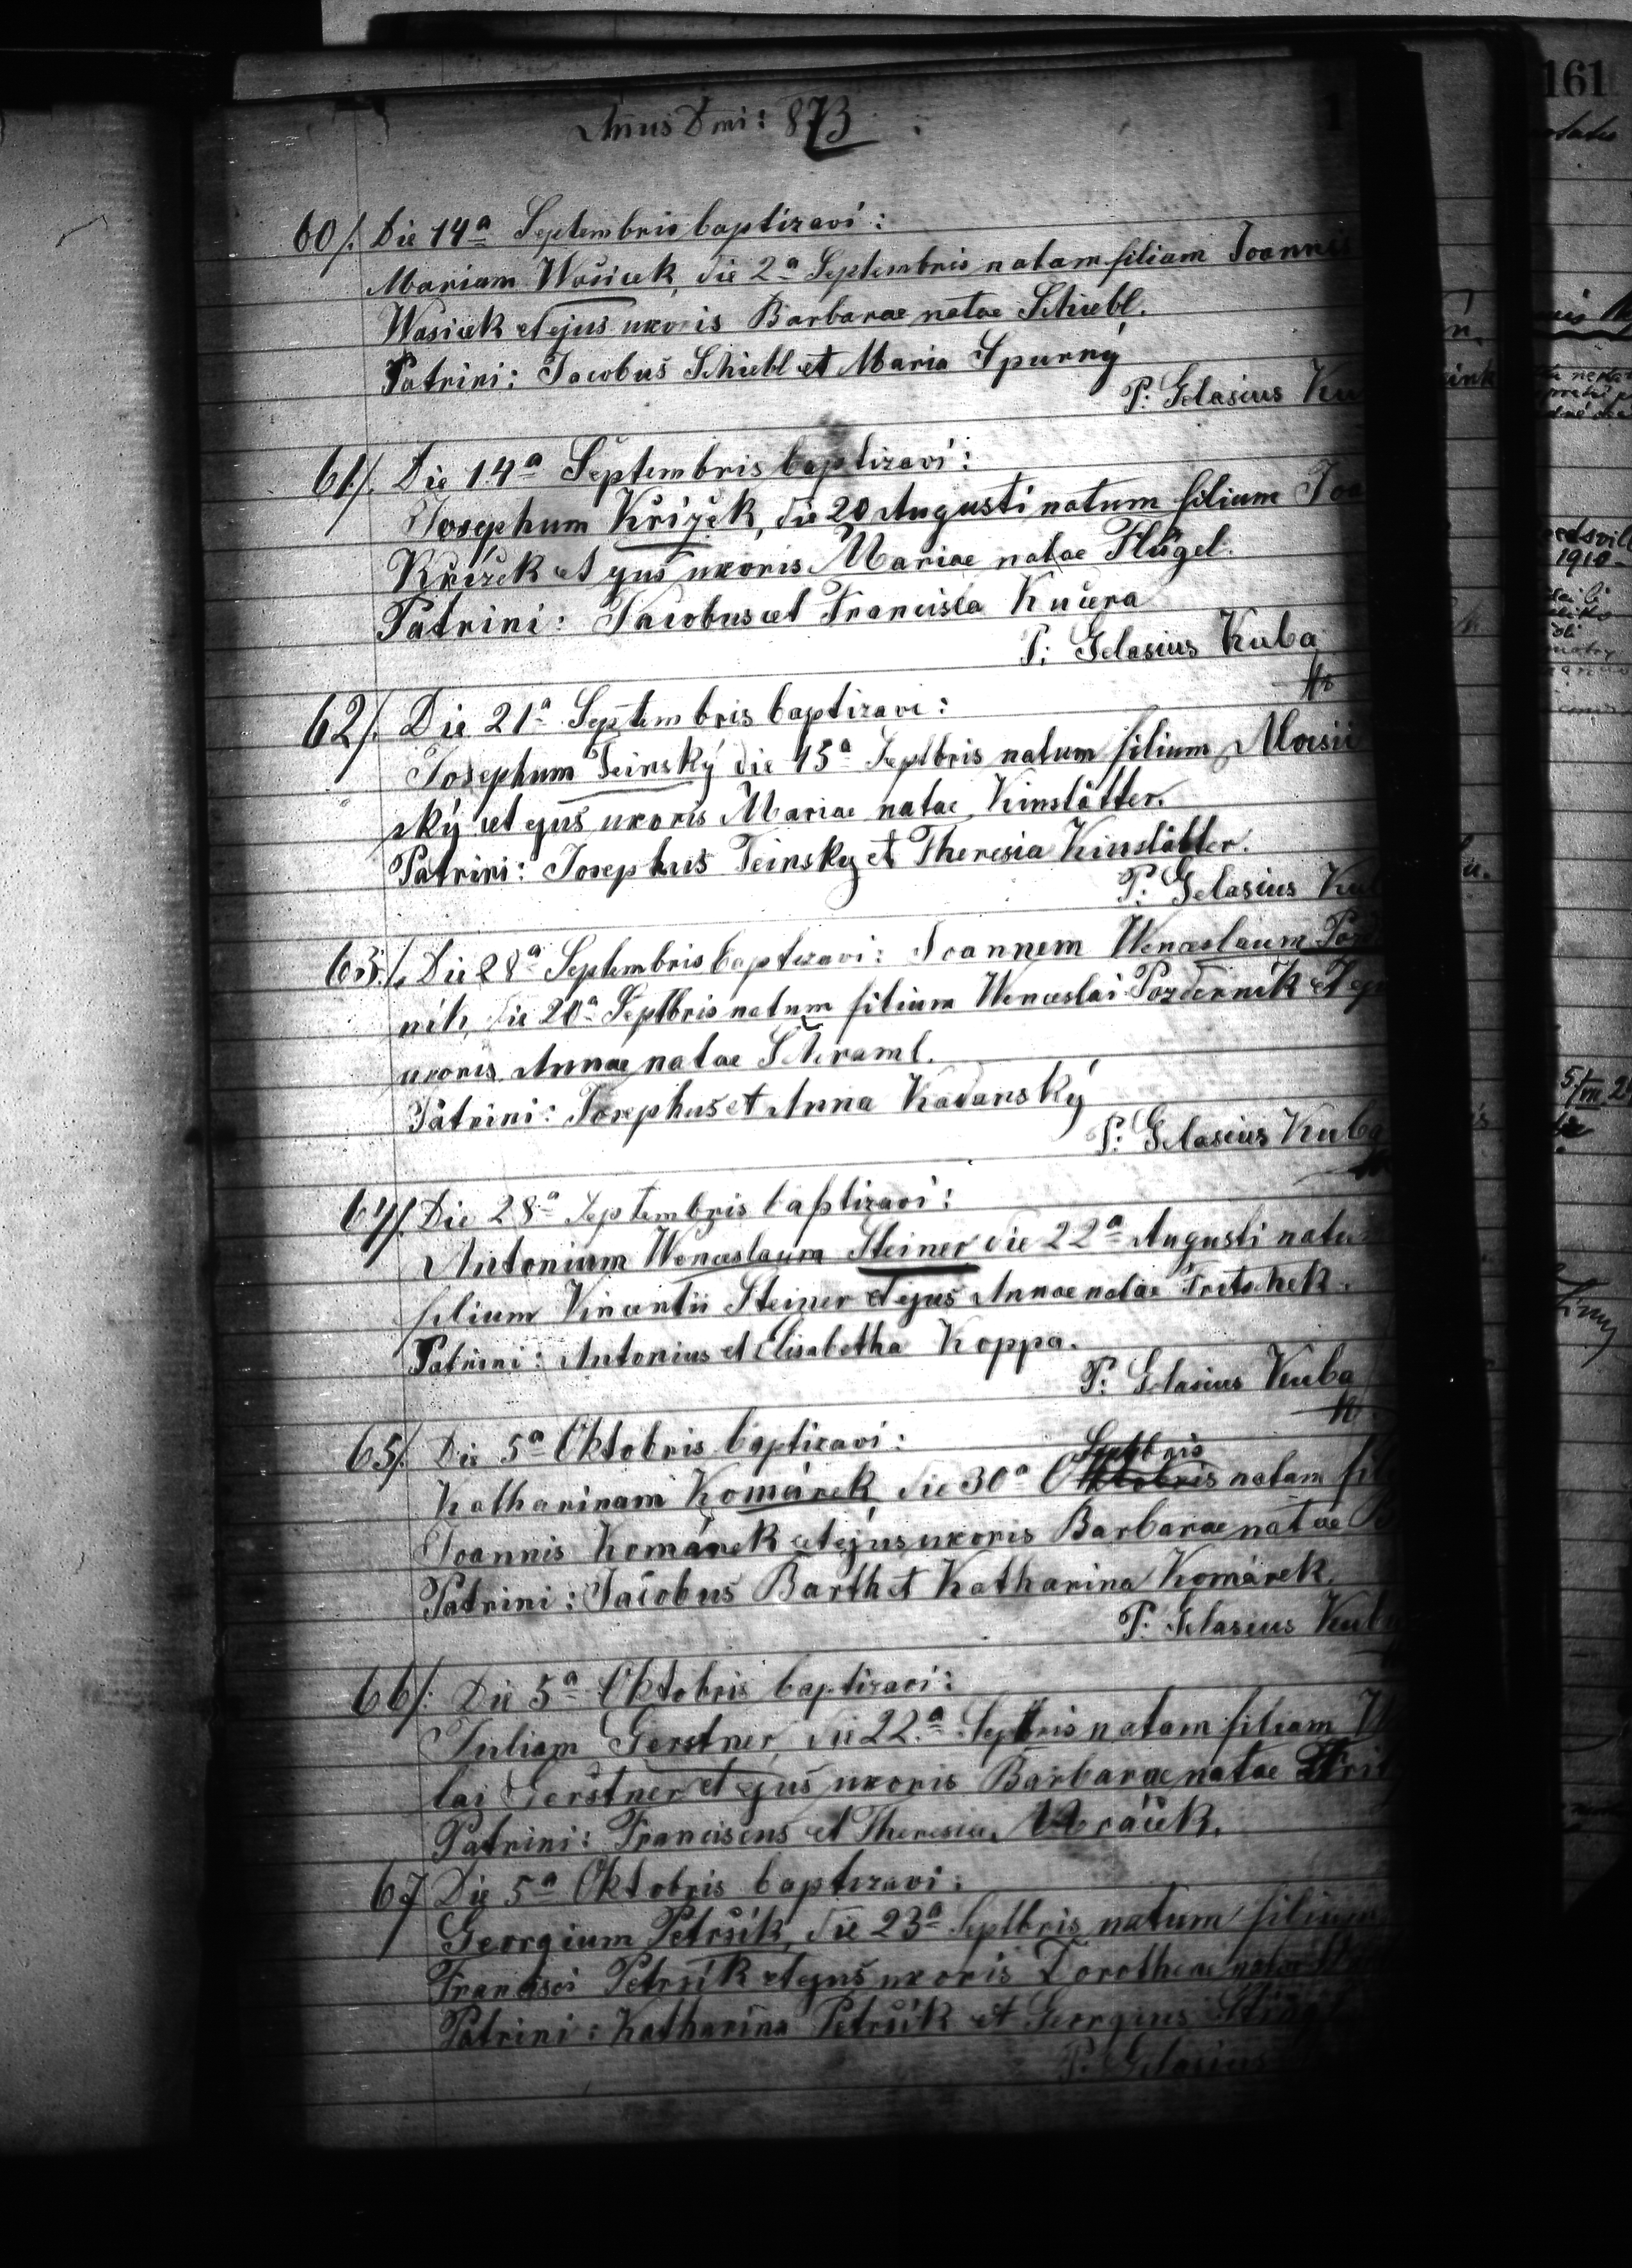 Annus Dmi: 873
161
60/. Die 14a Septembris baptizavi:
Mariam Wasicek, die 2a Septembris natam filiam Joannis
Wasicek et ejus uxoris Barbarae natae Schiebl.
Patrini: Jacobus Schiebl et Maria Spurný
P. Gelasius Ku
61/. Die 14a Septembris baptizavi:
Josephum Křížek, die 20 Augusti natum filium Joa
Křížek et ejus uxoris Mariae natae Flügel.
Patrini: Jacobus et Francisca Kučera
P. Gelasius Kuba
62/. Die 21a Septembris baptizavi:
Josephum Teinský die 15a Septbris natum filium
ský et ejus uxoris Mariae natae Kinstätter.
Patrini: Josephus Teinsky et Theresia Kinstätter.
P. Gelasius Kub
63/. Die 28a Septembris baptizavi: Joannem Wenceslaum Poz
nik, die 20a Septbris natum filium Wenceslai Pozdernik et eju
uxoris Annae natae Schraml.
Patrini: Josephus et Anna Kadanský
P. Gelasius Kuba
64/. Die 28a Septembris baptizavi:
Antonium Wenceslaum Steiner die 22a Augusti natu
filium Vincentii Steiner et ejus Annae natae Fritschek.
Patrini: Antonius et Elisabetha Koppa.
P. Gelasius Kuba
65/. Die 5a Oktobris baptizavi:
Septbris
Katharinam Komárek, die 30a Oktobris natam fil
Joannis Komárek et ejus uxoris Barbarae natae B
Patrini: Jacobus Barth et Katharina Komárek.
P. Gelasius Kuba
66/. Die 5a Oktobris baptizavi:
Juliam Gerstner, die 22a Septbris natam filiam
lai Gerstner et ejus uxoris Barbarae natae
Patrini: Franciscus et Theresia Mráček.
67 Die 5a Oktobris baptizavi:
Georgium Petrsik, die 23a Septbris natum filium
Francisci Petrsik et ejus uxoris Dorotheae natae
Patrini: Katharina Petrsik et Georgius
P. Gelasius